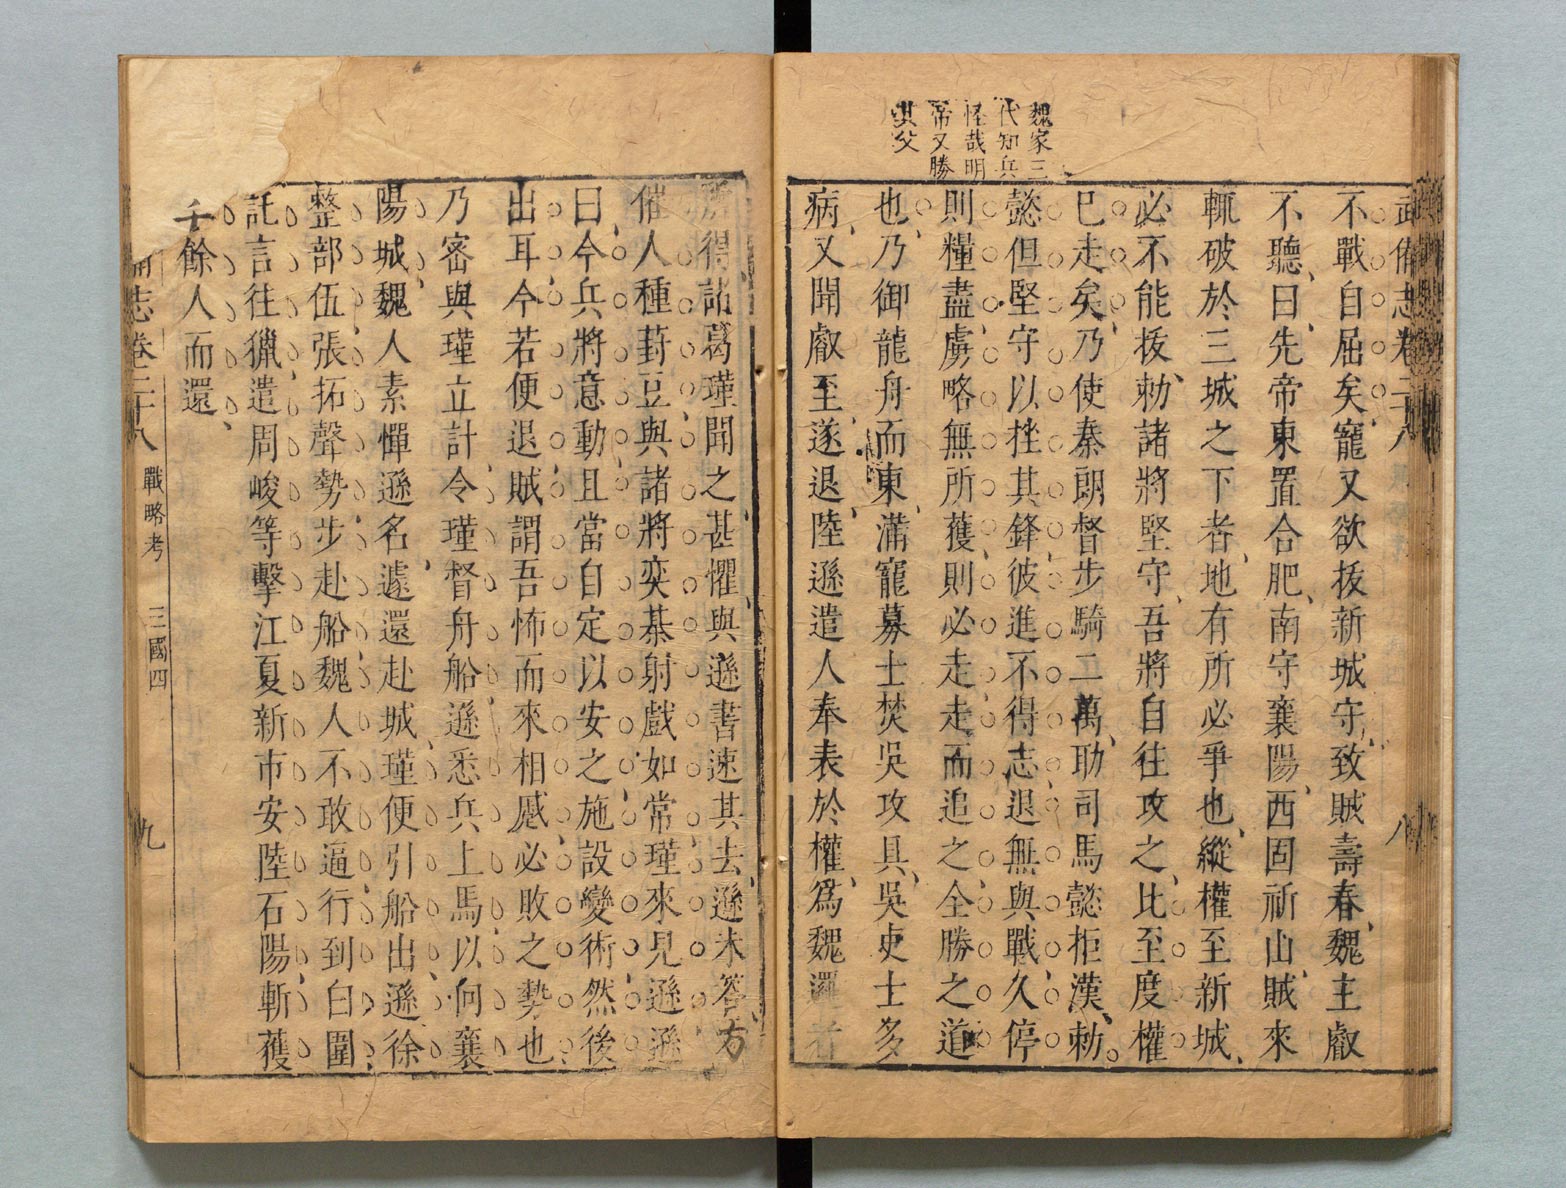 魏家三
代知兵
怪哉明
帝又勝
其父
武備志卷二十八 八
不戰自屈矣、寵又欲拔新城守、致賊壽春、魏主叡
不聽、曰、先帝東置合肥、南守襄陽、西固祈山、賊來
輒破於三城之下者、地有所必爭也、縱權至新城、
必不能拔、勅諸將堅守、吾將自往攻之、比至度權
巳走矣、乃使秦朗督步騎二萬、助司馬懿拒漢、勅
懿但堅守以挫其鋒、彼進不得志、退無與戰、久停
則糧盡、虜略無所獲、則必走、走而追之、全勝之道
也、乃御龍舟而東、滿寵募士焚吳攻具、吳吏士多
病、又聞叡至、遂退、陸遜遣人奉表於權、爲魏邏者
所得、諸葛瑾聞之、甚懼、與遜書速其去、遜未答、方
催人種葑豆、與諸將奕棊射戲如常、瑾來見遜、遜
曰、今兵將意動、且當自定以安之、施設變術、然後
出耳、今若便退、賊謂吾怖而來相蹙、必敗之勢也、
乃密與瑾立計、令瑾督舟船、遜悉兵上馬、以向襄
陽城、魏人素憚遜名、遽還赴城、瑾便引船出、遜徐
整部伍、張拓聲勢、步赴船、魏人不敢逼、行到白圍、
託言往獵、遣周峻等擊江夏新市安陸石陽、斬獲
千餘人而還、
志卷二十八 戰略考 三國四 九